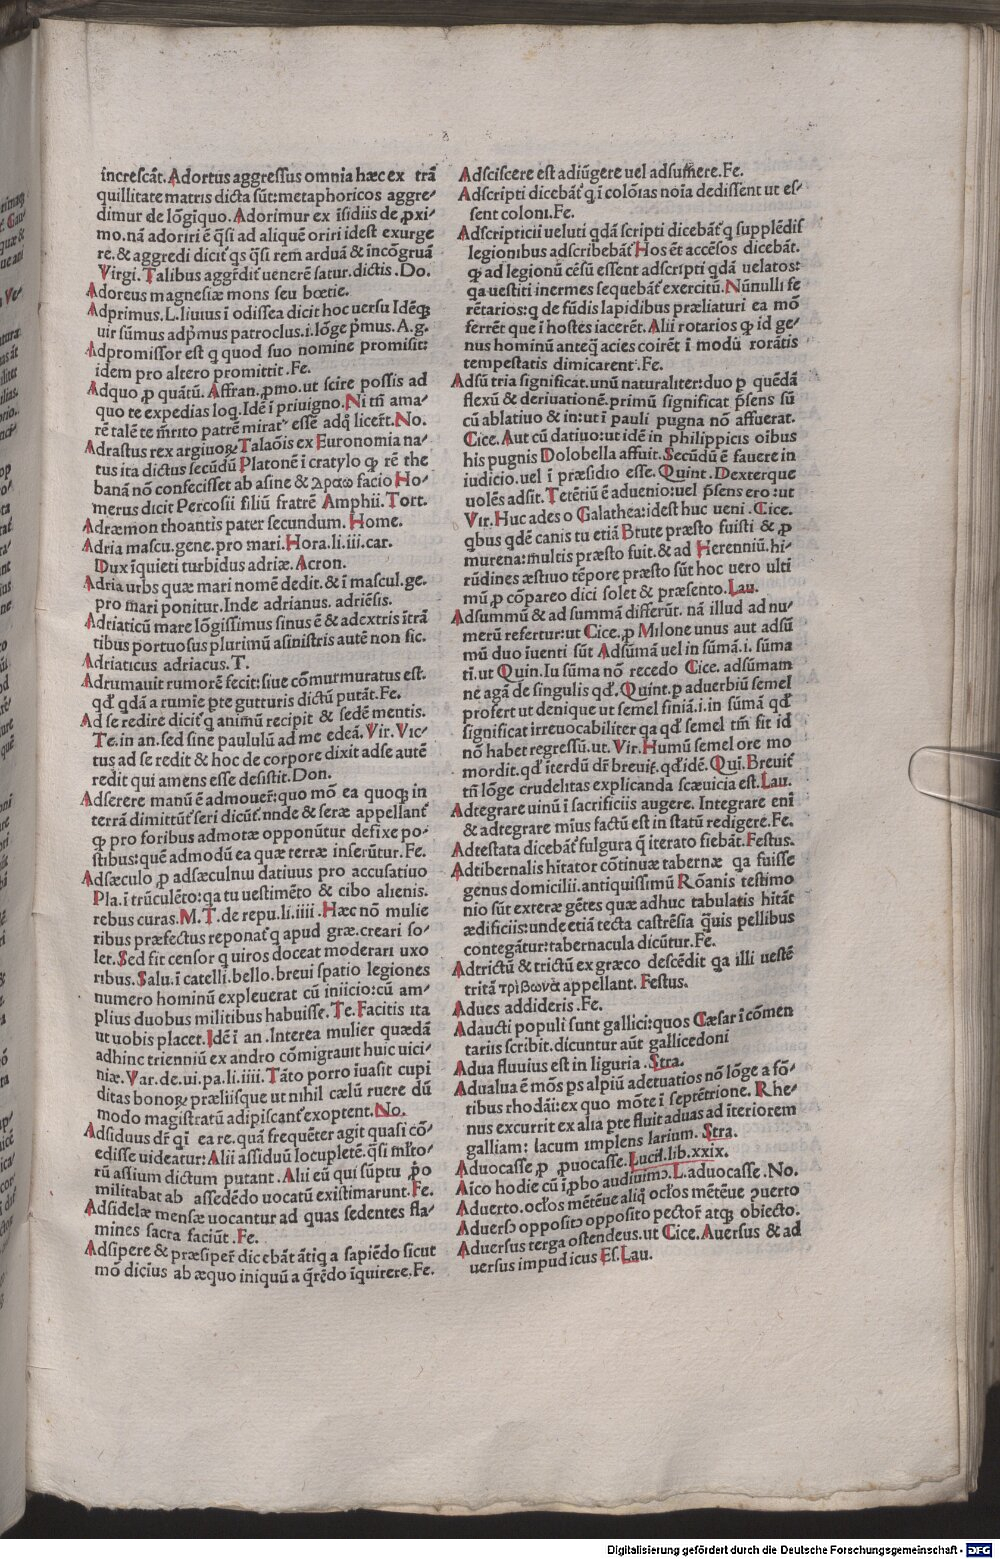 increscāt. Adortus aggressus omnia hæc ex trā
quillitate matris dicta sūt: metaphoricos aggre⸗
dimur de lōgiquo. Adorimur ex īsidiis de ꝓxi⸗
mo. nā adoriri ē q̄si ad aliquē oriri idest exurge
re. & aggredi dicit̄ qs q̄si rem arduā & īncōgruā
Virgi. Talibus aggr̄dit̄ uenerē satur. dictis. Do.
Adoreus magnesiæ mons seu bœtie.
Adprimus. L. liuius ī odissea dicit hoc uersu Idēqꝫ
uir sūmus adp̄mus patroclus. i. lōge p̄mus. A. g.
Adpromissor est q quod suo nomine promisit:
idem pro altero promittit. Fe.
Adquo ꝓ quātū. Affran. ꝓmo. ut scire possis ad
quo te expedias loq. Idē ī priuigno. Ni tn̄ ama⸗
rē talē te m̄rito patrē mirar̄ esse adq̄ licer̄t. No.
Adrastus rex argiuoꝝ Talaōis ex Euronomia na⸗
tus ita dictus secūdū Platonē ī cratylo ꝙ rē the
banā nō confecisset ab asine & λραω facio Ho⸗
merus dicit Percosii filiū fratrē Amphii. Tort.
Adræmon thoantis pater secundum. Home.
Adria mascu. gene. pro mari. Hora. li. iii. car.
Dux īquieti turbidus adriæ. Acron.
Adria urbs quæ mari nomē dedit. & ī mascul. ge.
pro mari ponitur. Inde adrianus. adriēsis.
Adriaticū mare lōgissimus sinus ē & adextris ītrā
tibus portuosus plurimū asinistris autē non sic.
Adriaticus adriacus. T.
Adrumauit rumorē fecit: siue cōmurmuratus est.
qd̄ qdā a rumie ꝑte gutturis dictū putāt. Fe.
Ad se redire dicit̄ q animū recipit & sedē mentis.
Te. in an. sed sine paululū ad me edeā. Vir. Vic⸗
tus ad se redit & hoc de corpore dixit adse autē
redit qui amens esse desistit. Don.
Adserere manū ē admouer̄: quo mō ea quoqꝫ in
terrā dimittūt̄ seri dicūt̄. nnde & seræ appellant̄
ꝙ pro foribus admotæ opponūtur defixe po⸗
stibus: quē admodū ea quæ terræ inserūtur. Fe.
Adsæculo ꝓ adsæculnu datiuus pro accusatiuo
Pla. ī trūculēto: qa tu uestimēto & cibo alienis.
rebus curas. M. T. de repu. li. iiii. Hæc nō mulie
ribus præfectus reponat̄ q apud græ. creari so⸗
let. Sed fit censor q uiros doceat moderari uxo
ribus. Salu. ī catelī. bello. breui spatio legiones
numero hominū expleuerat cū iniicio: cū am⸗
plius duobus militibus habuisse. Te. Facitis ita
ut uobis placet. Idē ī an. Interea mulier quædā
adhinc trienniū ex andro cōmigrauit huic uici⸗
niæ. Var. de. ui. pa. li. iiii. Tāto porro iuasit cupi
ditas bonoꝝ præliisque ut nihil cælū ruere dū
modo magistratū adipiscant̄ exoptent. No.
Adsiduus dr̄ qī ea re. quā frequēter agit quasi cō⸗
edisse uideatur: Alii assiduū locupletē. q̄si m̄lto⸗
rū assium dictum putant. Alii eū qui sūptu ꝓo
militabat ab assedēdo uocatū existimarunt. Fe.
Adsidelæ mensæ uocantur ad quas sedentes fla⸗
mines sacra faciūt. Fe.
Adsipere & præsiper̄ dicebāt āt̄iq a sapiēdo sicut
mō diciīus ab æquo iniquū a q̄rēdo īquirere. Fe.
Adsciscere est adiūgere uel adsumere. Fe.
Adscripti dicebāt̄ q ī colōias noīa dedissent ut es⸗
sent coloni. Fe.
Adscripticii ueluti qdā scripti dicebāt̄ q supplēdis
legionibus adscribebāt̄ Hos ēt accēsos dicebāt.
ꝙ ad legionū cēsū essent adscripti qdā uelatos:
qa uestiti inermes sequebāt̄ exercitū. Nūnulli fe
rētarios: q de fūdis lapidibus præliaturi ea mō
ferrēt que ī hostes iacerēt. Alii rotarios ꝙ id ge⸗
nus hominū anteq̄ acies coirēt ī modū rorātis
tempestatis dimicarent. Fe.
Adsū tria significat. unū naturaliter: duo ꝑ quēdā
flexū & deriuationē. primū significat p̄sens sū
cū ablatiuo & in: ut ī pauli pugna nō affuerat.
Cice. Aut cū datiuo: ut idē in philippicis oībus
his pugnis Dolobella affuit. Secūdū ē fauere in
iudicio. uel ī præsidio esse. Quint. Dexterque
uolēs adsit. Tetētriū ē aduenio: uel p̄sens ero: ut
Vir. Huc ades o Galathea: idest huc ueni. Cice.
qbus qdē canis tu etiā Btute præsto fuisti & ꝓ
murena: multis præsto fuit. & ad Herenniū. hi⸗
rūdines æstiuo tēpore præsto sūt hoc uero ulti
mū ꝓ cōpareo dici solet & præsento. Lau.
Adsummū & ad summā differūt. nā illud ad nu⸗
merū refertur: ut Cice. ꝓ Milone unus aut adsū
mū duo īuenti sūt Adsūmā uel in sūmā. i. sūma
tī. ut Quin. Iu sūma nō recedo Cice. adsūmam
ne agā de singulis qd̄. Quint. ꝑ aduerbiū semel
profert ut denique ut semel finiā. i. in sūmā qd̄
significat irreuocabiliter qa qd̄ semel tm̄ fit id
nō habet regressū. ut. Vir. Humū semel ore mo
mordit. qd̄ īterdū dr̄ breuit̄. qd̄ idē. Quī. Breuit̄
tn̄ lōge crudelitas explicanda scæuicia est. Lau.
Adtegrare uinū ī sacrificiis augere. Integrare enī
& adtegrare mīus factū est in statū redigere. Fe.
Adtestata dicebāt̄ fulgura q̄ iterato fiebāt. Festus.
Adtibernalis hitator cōtinuæ tabernæ qa fuisse
genus domicilii. antiquissimū Rōanis testimo
nio sūt exteræ gētes quæ adhuc tabulatis hitāt
ædificiis: unde etiā tecta castrēsia q̄uis pellibus
contegātur: tabernacula dicūtur. Fe.
Adtrictū & trictū ex græco descēdit qa illi uestē
tritā τρίβωνὰ appellant. Festus.
Adues addideris. Fe.
Adaucti populi sunt gallici: quos Cæsar ī cōmen
tariis scribit. dicuntur aūt gallicedoni
Adua fluuius est in liguria. Stra.
Adualua ē mōs ps alpiū adetuatios nō lōge a fō⸗
tibus rhodāi: ex quo mōte ī septētrione. Rhe⸗
nus excurrit ex alia pte fluit aduas ad īteriorem
galliam: lacum implens larium. Stra.
Aduocasse ꝓ ꝓuocasse. Lucil. lib. xxix.
Aico hodie cū īꝓbo audiuimꝰ. L. aduocasse. No.
Aduerto. oct̄os mētēue aliq oct̄os mētēue ꝯuerto
Aduersꝰ oppositꝰ opposito pector̄ atqꝫ obiecto.
Aduersus terga ostendeus. ut Cice. Auersus & ad
uersus impudicus Es. Lau.
Digitalisierung gefördert durch die Deutsche Forschungsgemeinschaft - DFG